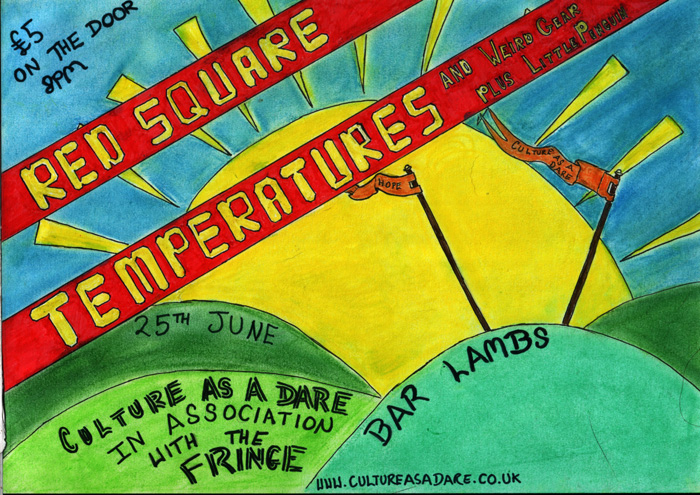 £5
ON THE DOOR
8PM
RED SQUARE
TEMPERATURES
AND WEIRD GEAR
PLUS LITTLE PENGUIN
HOPE
CULTURE AS A
DARE
25TH JUNE
CULTURE AS A DARE
IN ASSOCIATION
WITH THE
FRINGE
BAR LAMBS
WWW.CULTUREASADARE.CO.UK